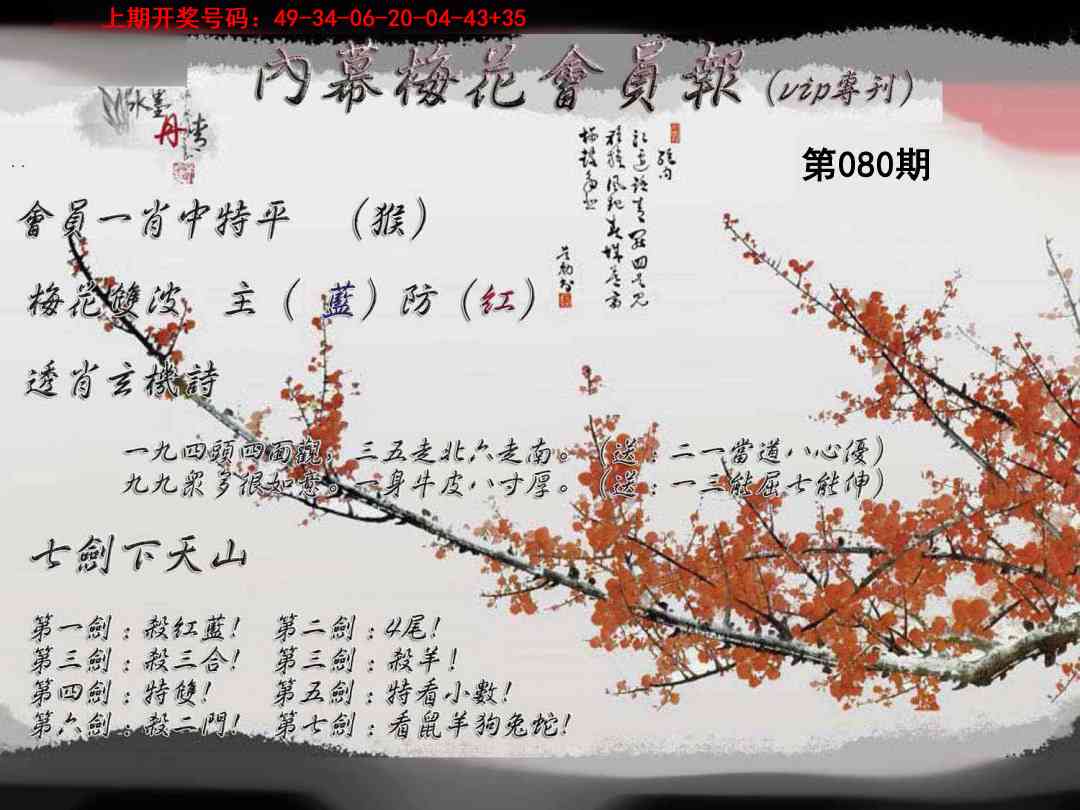 上期开奖号码：49-34-06-20-04-43+35
內幕梅花會員報（vip專刊）
水墨
丹青
第080期
會員一肖中特平 （猴）
梅花雙波 主（藍）防（紅）
透肖玄機詩
一九四頭四面觀，三五走北六走南。（送：二一當道八心優）
九九眾多很如意。一身牛皮八寸厚。（送：一三能屈七能伸）
七劍下天山
第一劍：殺紅藍！ 第二劍：4尾！
第三劍：殺三合！ 第三劍：殺羊！
第四劍：特雙！ 第五劍：特看小數！
第六劍：殺二門！ 第七劍：看鼠羊狗兔蛇！